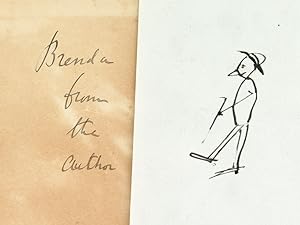 Brenda
from
the
author